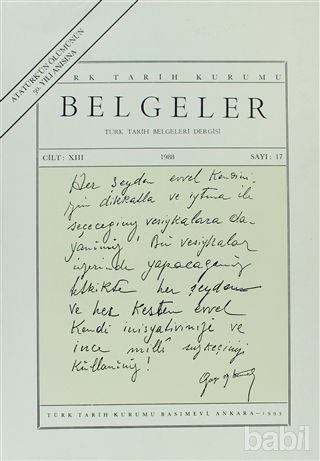 ATATÜRK'ÜN ÖLÜMÜNÜN
50. YILI ANISINA
TÜRK TARİH KURUMU
BELGELER
TÜRK TARİH BELGELERİ DERGİSİ
CİLT: XIII 1988 SAYI: 17
Her şeyden evvel kendini-
zin dikkatla ve iştina ile
seçeceginiz vesiykalara da-
yanınız! Bu vesiykalar
üzerinde yapacağınız
tetkikte her şeyden
ve her kesten evvel
kendi inisyativinizi ve
ince millî süzgecinizi
kullanınız!
TÜRK TARİH KURUMU BASIMEVİ, ANKARA — 1993
babil